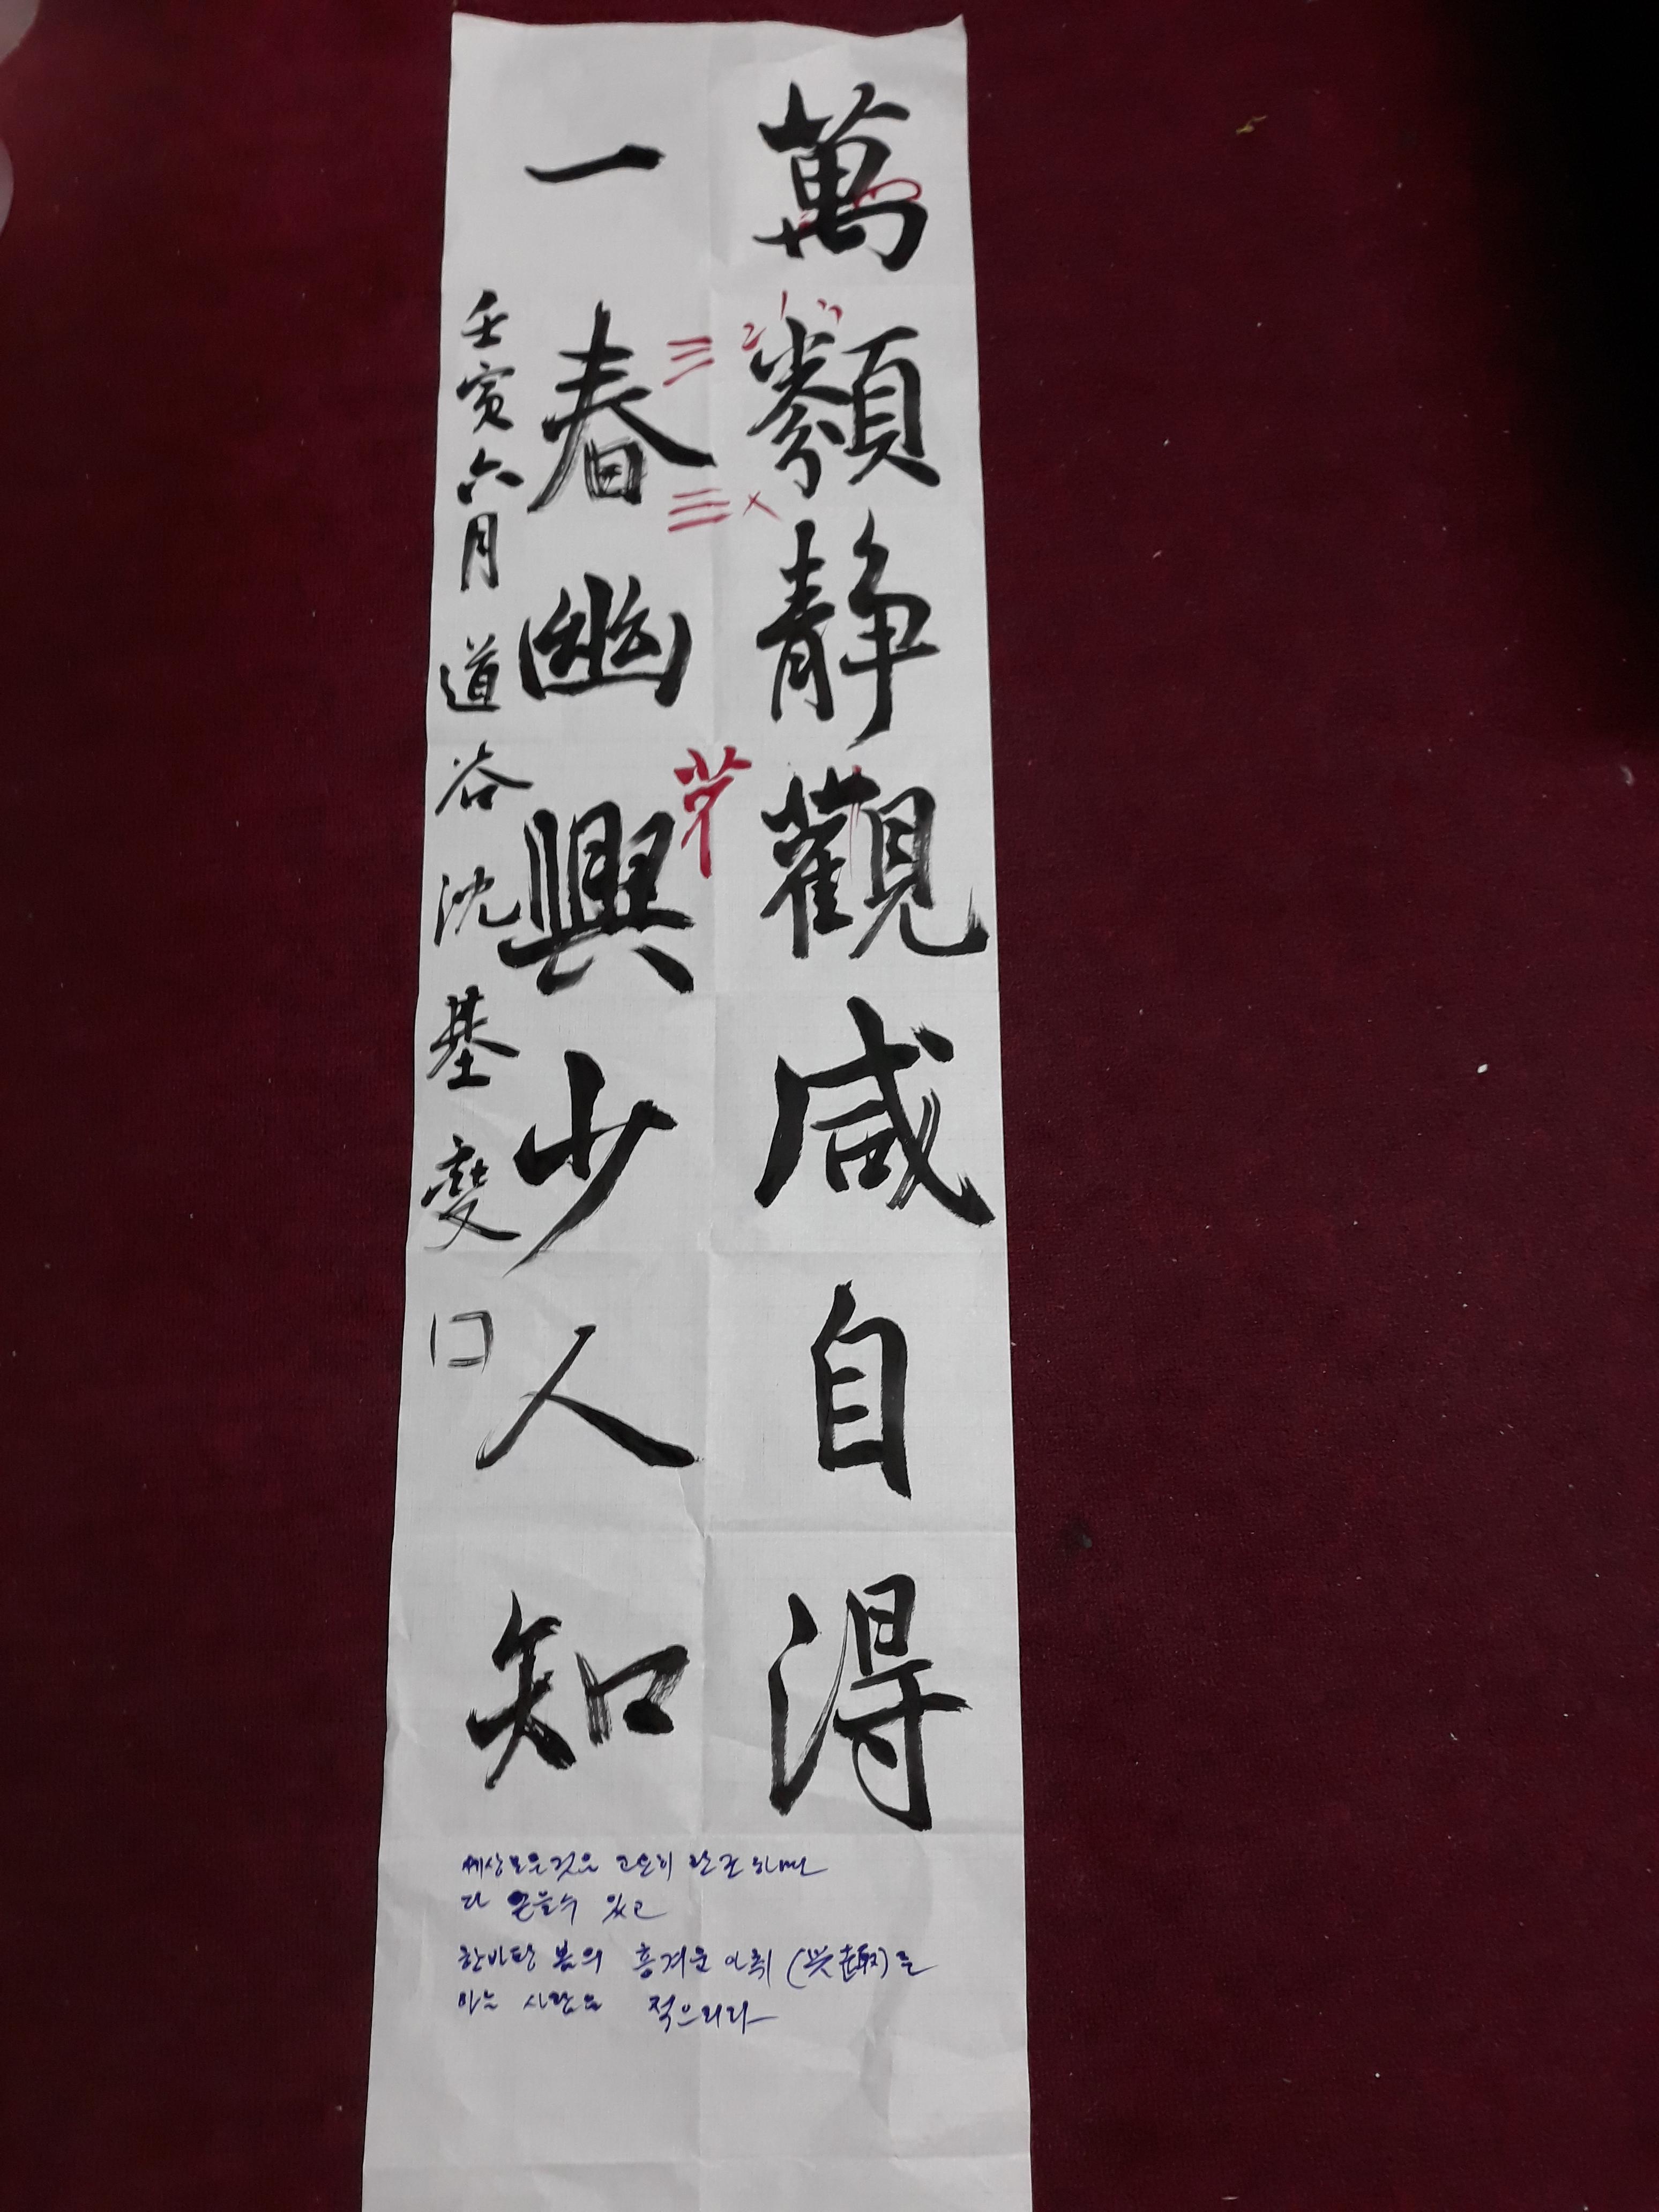 萬類靜觀咸自得
一春幽興少人知
壬寅六月 道谷 沈基燮 口
세상모든것은 고요히 관조하면
다 얻을수 있고
한바탕 봄의 흥겨운 아취 (興趣)를
아는 사람은 적으리라